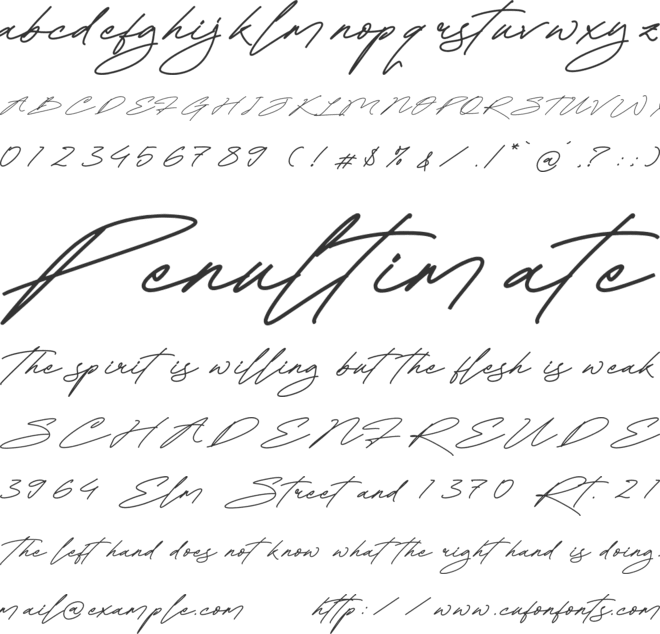 abcdefghijklmnopqrstuvwxyz
ABCDEFGHIJKLMNOPQRSTUVWX
0123456789 (!#$%&/.|*`@´,?:;)
Penultimate
The spirit is willing but the flesh is weak
SCHADENFREUDE
3964 Elm Street and 1370 Rt. 21
The left hand does not know what the right hand is doing.
mail@example.com http://www.cufonfonts.com